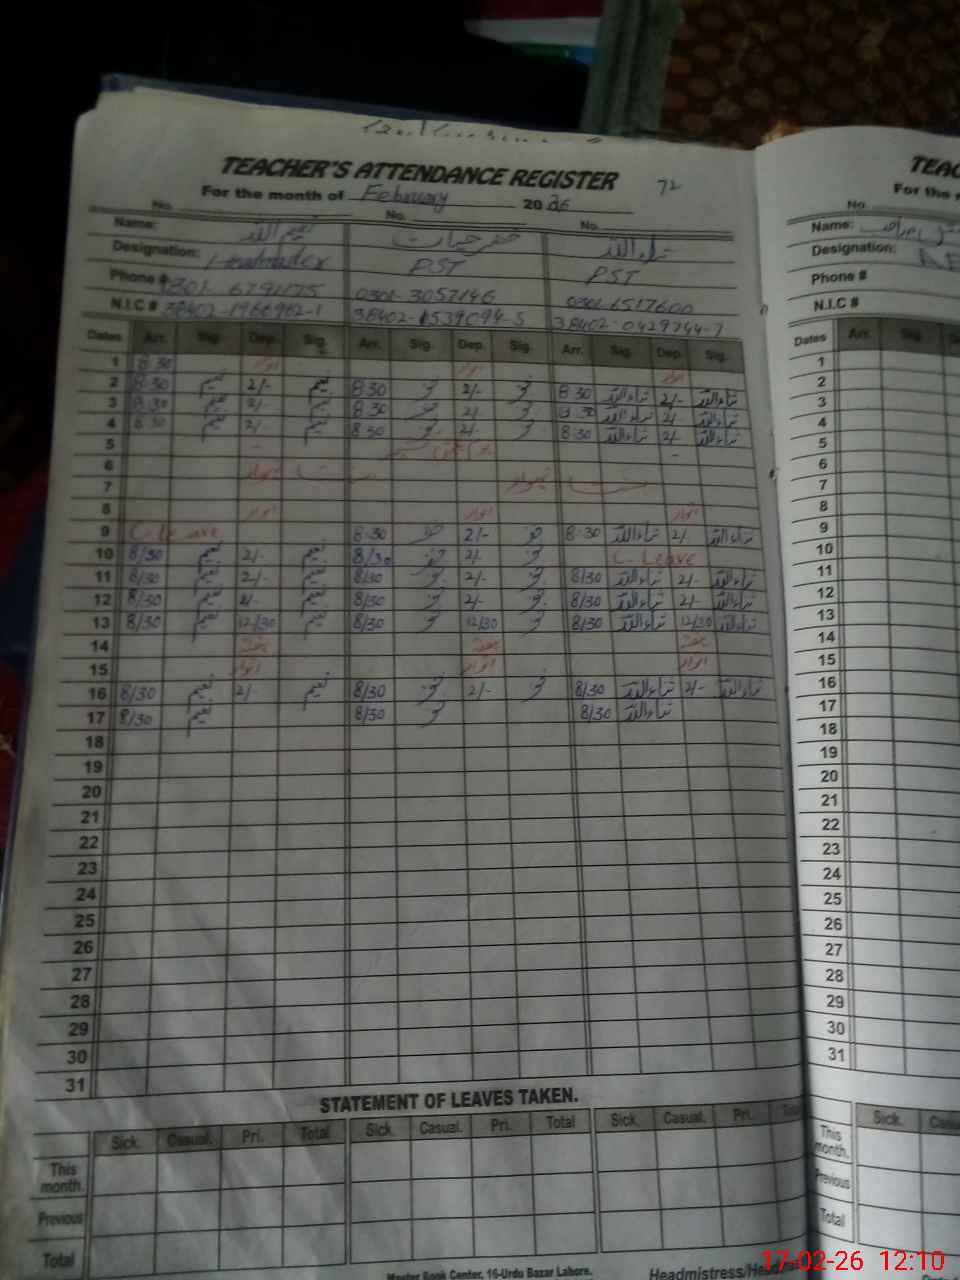 TEACHER'S ATTENDANCE REGISTER 72
For the month of February 2026
No. No. No.
Name: نعیم اللہ خضر حیات ثناء اللہ
Designation: PST PST
Phone # 0301-6791175 0301-3057146 0301-6517600
N.I.C # 38402-1966962-1 38402-1539094-5 38402-0429744-7
Dates Arr. Sig. Dep. Sig. Arr. Sig. Dep. Sig. Arr. Sig. Dep. Sig.
1 8:30 اتوار اتوار اتوار
2 8:30 نعیم 2/- نعیم 8:30 2/- 8:30 ثناءاللہ 2/- ثناءاللہ
3 8:30 نعیم 2/- نعیم 8:30 2/- 8:30 ثناءاللہ 2/- ثناءاللہ
4 8:30 نعیم 2/- نعیم 8:30 2/- 8:30 ثناءاللہ 2/- ثناءاللہ
5
6
7
8 اتوار اتوار اتوار
9 C. Leave 8:30 2/- 8:30 ثناءاللہ 2/- ثناءاللہ
10 8/30 نعیم 2/- نعیم 8/30 2/- C. Leave
11 8/30 نعیم 2/- نعیم 8/30 2/- 8/30 ثناءاللہ 2/- ثناءاللہ
12 8/30 نعیم 2/- نعیم 8/30 2/- 8/30 ثناءاللہ 2/- ثناءاللہ
13 8/30 نعیم 12/30 نعیم 8/30 12/30 8/30 ثناءاللہ 12/30 ثناءاللہ
14 ہفتہ ہفتہ ہفتہ
15 اتوار اتوار اتوار
16 8/30 نعیم 2/- نعیم 8/30 2/- 8/30 ثناءاللہ 2/- ثناءاللہ
17 8/30 نعیم 8/30 8/30 ثناءاللہ
18
19
20
21
22
23
24
25
26
27
28
29
30
31
STATEMENT OF LEAVES TAKEN.
Sick. Casual. Pri. Total Sick. Casual. Pri. Total Sick. Casual. Pri.
This month.
Previous
Total
Master Book Center, 16-Urdu Bazar Lahore. Headmistress/
TEAC
For the
No.
Name:
Designation:
Phone #
N.I.C #
Dates Arr. Sig.
1
2
3
4
5
6
7
8
9
10
11
12
13
14
15
16
17
18
19
20
21
22
23
24
25
26
27
28
29
30
31
Sick.
This month.
Previous
Total
17-02-26 12:10